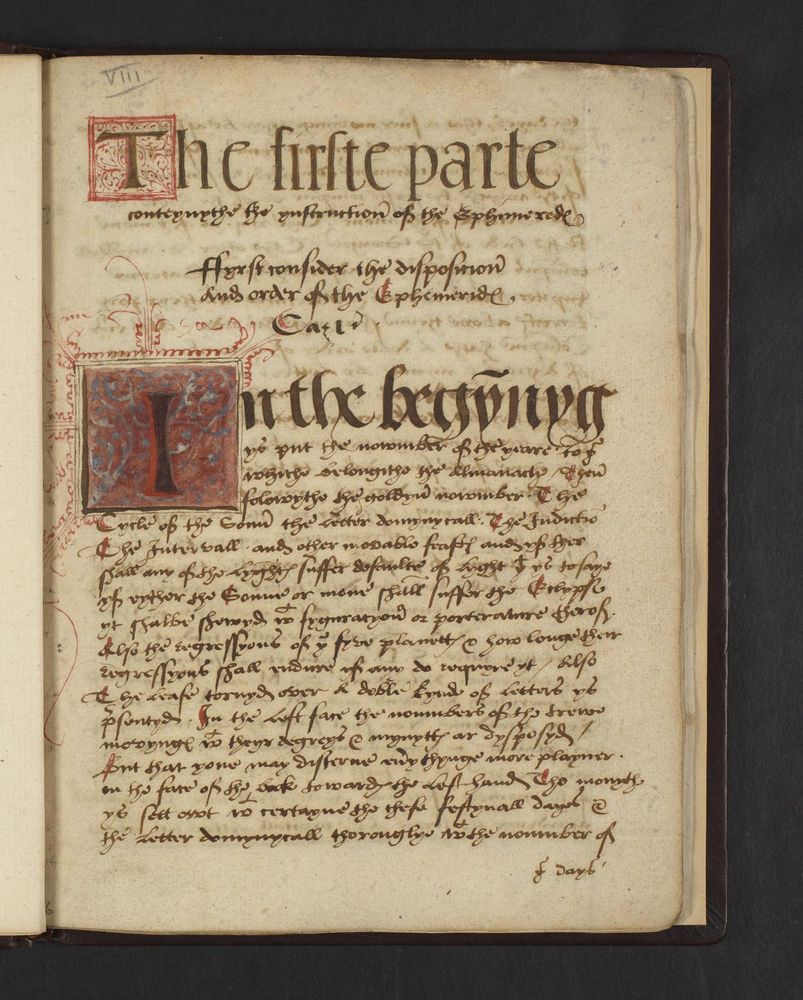 VIII
The firste parte
conteynythe the ynstruction of the Ephimered
ffyrst consider the disposicion
And order of the Ephemerid.
Ca. 1
In the begȳnyg
ys put the nowmber of the yeare to
whiche belongithe the Almanacke / Then
folowythe the goldyn nowmber. The
Cycle of the Sonn the letter domynycall. The Indictiō
The Intervall. and other movable feast and yf ther
shall any of the lyghts suffer defaulte of lyght yt ys to saye
yf eyther the Sonne or mone shall suffer the Eclypse
yt shalbe shewyd wt fyguracyon or porterature therof.
Also the regressyons of ye fyve planett & how longe their
regressyons shall endure yf any do requyre yt / Also
The lease tornyd over A doble kynde of letters ys
p̄sentyd. In the left face the nombers of the trewe
movyng wt theyr degreys & mynytt ar dysposyd /
But that youe may disterne euy thynge more playner.
in the face of the bock toward the left hand The monythe
ys sett owt wt certayne the these festyuall dayes &
the letter domynycall thorouglye wt the nomber of
ye days